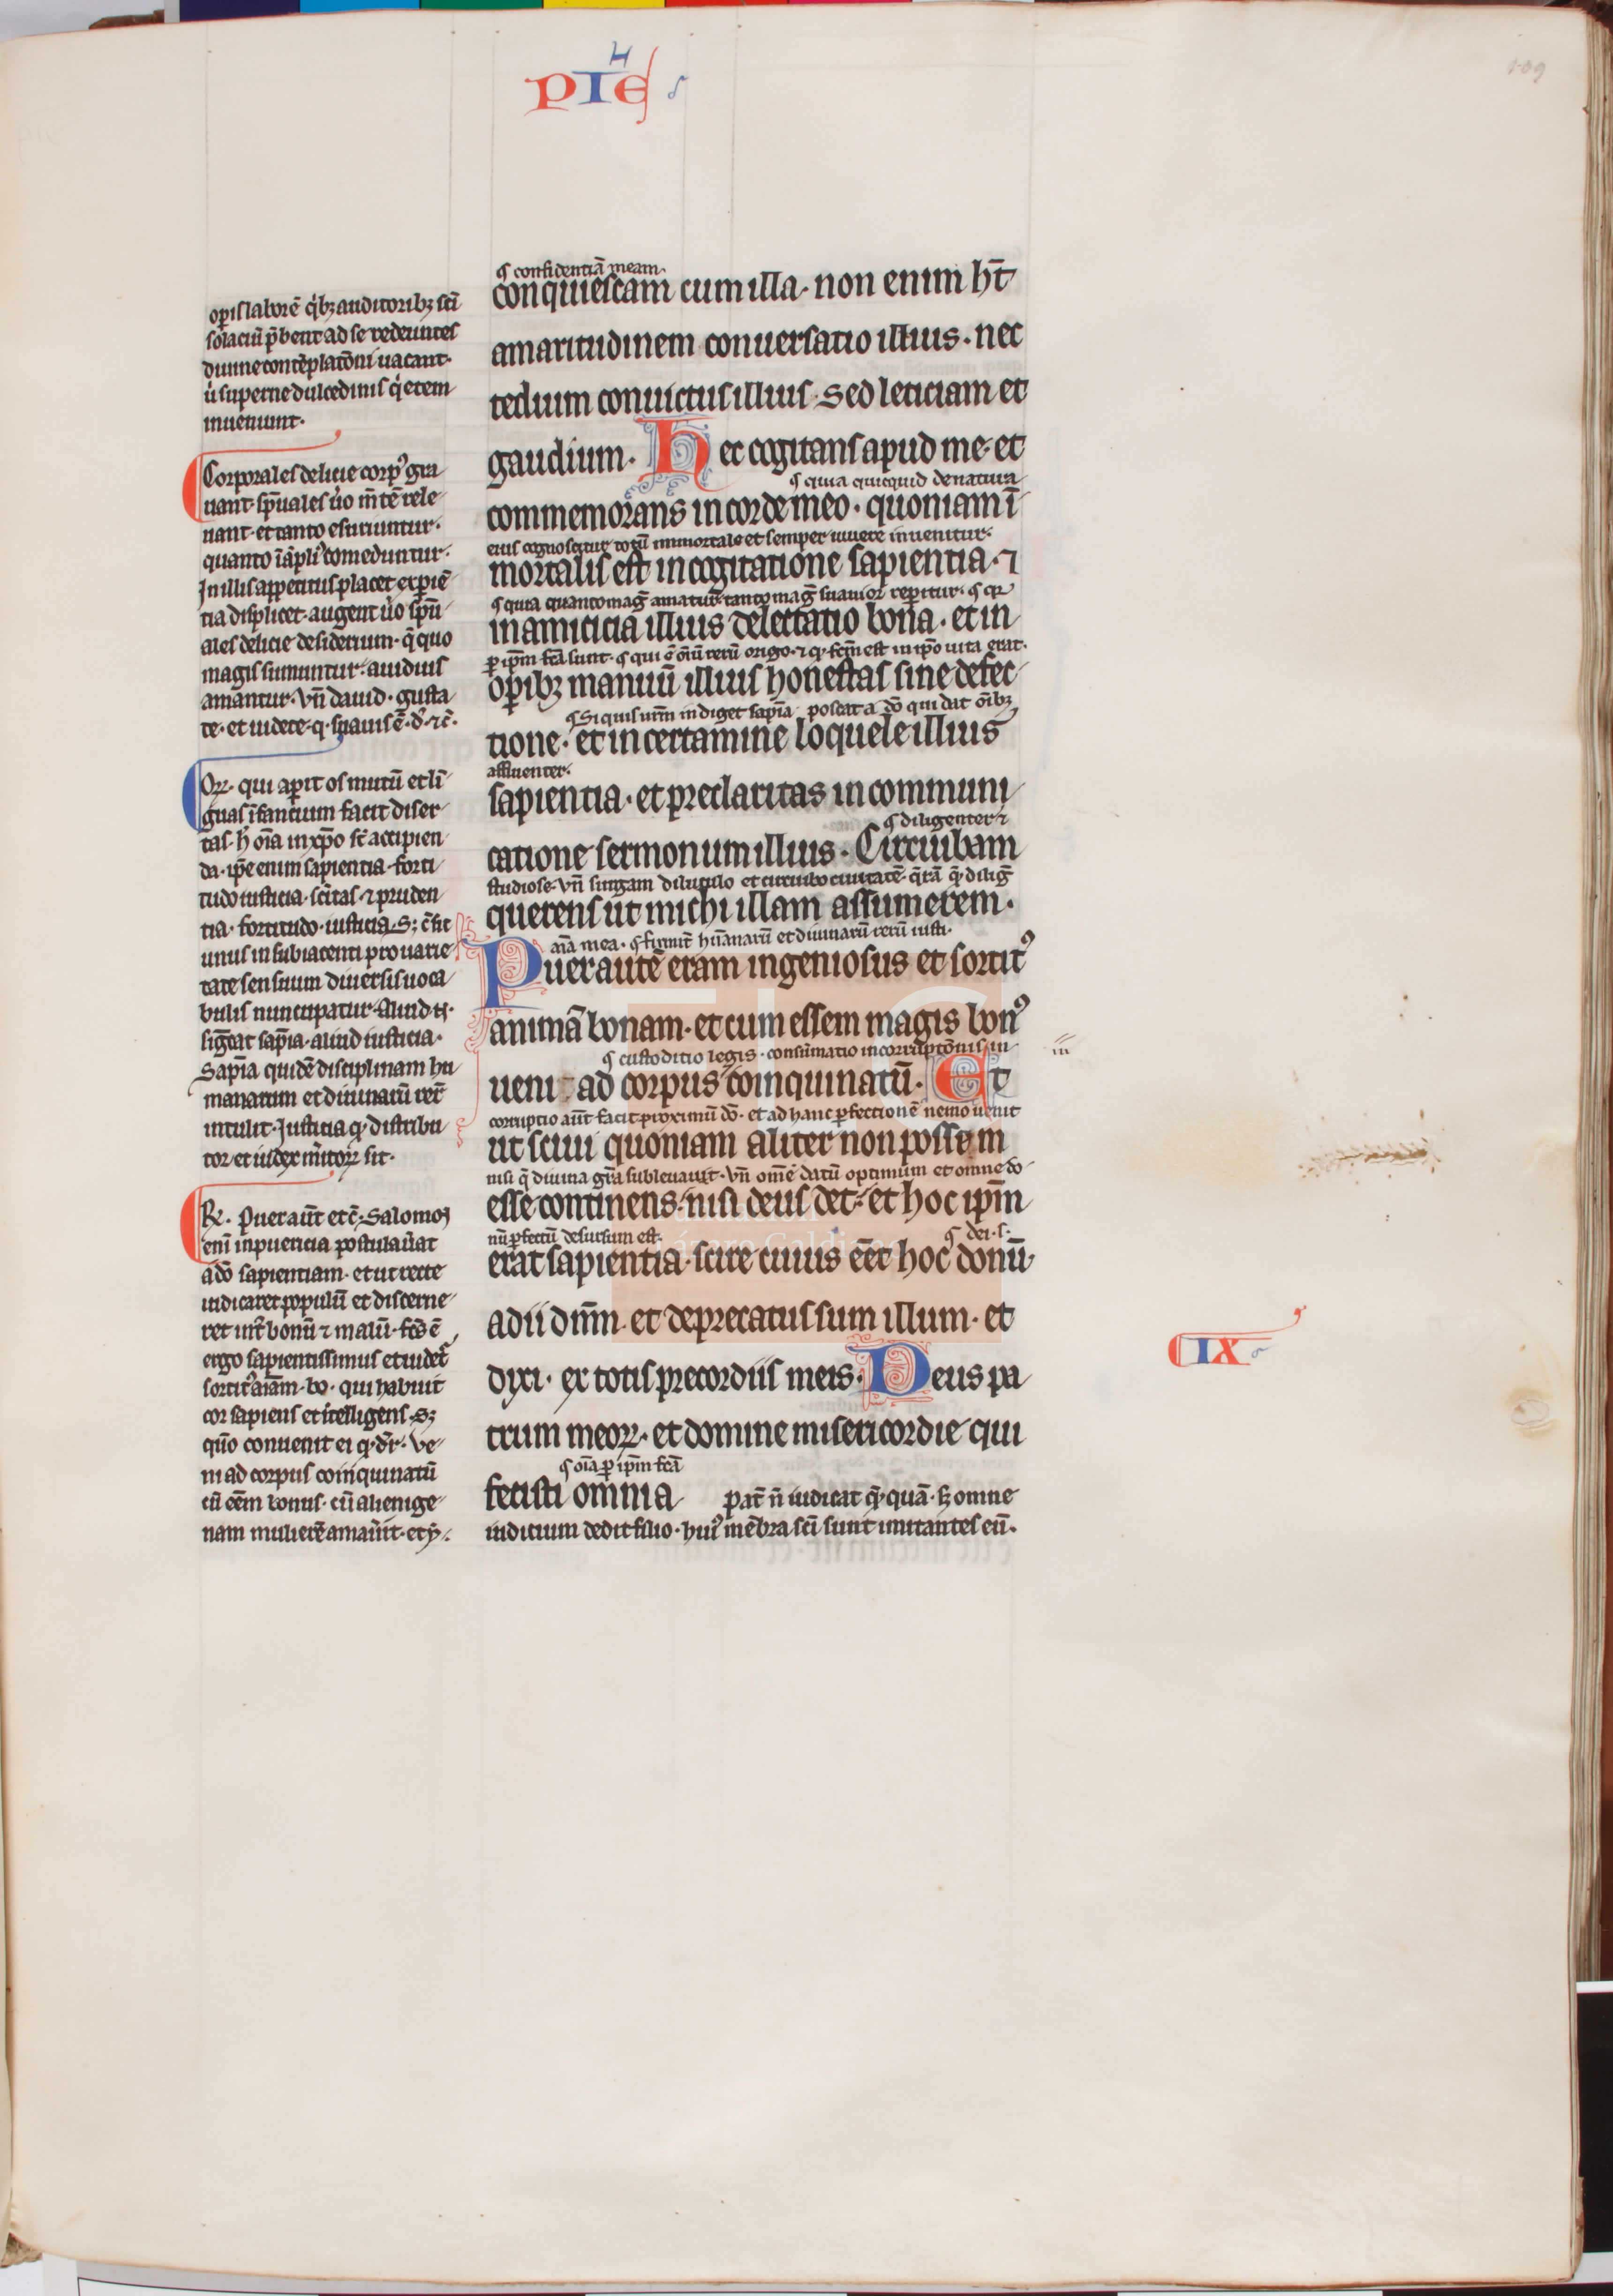 PIE
H
109
oꝑis laborē qͥbꝫ auditoribꝫ sci̅
solaciū p̄bent ad se redeuntes
diuine contēplatōni uacant·
ů superne dulcedinis qͥetem
inueniunt·
Corporales delicie corpꝰ gra
uant· sp̄uales ůo m̄tē rele
uant· et tanto esuriuntur·
quanto īapliꝰ comeduntur·
In illis appetitus placet exꝑiē
tia displicet· augent ůo sp̄u
ales delicie desiderium· q̄ quo
magis sumuntur· auidius
amantur· Vn̄ dauid· gusta
te· et uidete· q· suauis ē· d̄· ⁊c̄·
Qꝛ· qui aꝑit os mutū et li̅
guas īfantium facit diser
tas· h̄ oı̅a in xp̄o sc̄ accipien
da· ip̄e enim sapientia· forti
tudo iusticia· sc̄itas· ⁊ pruden
tia· fortitudo· iusticia· Sꝫ
unus in subiacenti pro uarie
tate sensuum diuersis uoca
bulis nuncupatur· Aliud
sig̅cat sap̄ia· aliud iusticia·
Sap̄ia quidē disciplinam hu
manarum et diuinarū rerū
intulit· Iusticia q· distribu
tor et iudex m̄itoꝝ sit·
R̄· Puer aūt etc̄· Salomon
enī in puericia postulau̅at
a dō sapientiam· et ut recte
iudicaret populū et discerne
ret int̄ bonū ⁊ malū· fc̄s ē
ergo sapientissimus et uidet̄
sortitꝰ aı̅am· bo· qui habuit
cor sapiens et ītelligens· Sꝫ
quo̅ conuenit ei q· dr̄· ve
ni ad corpus coinquinatū
cū eēm bonus· cū alienige
nam mulierē amau̅it·
¶ confidentiā meam·
conquiescam cum illa· non enim hꝫ̄
amaritudinem conuersatio illius· nec
tedium conuictus illius· sed leticiam et
gaudium· Hec cogitans apud me· et
¶ quia quicquid de natura
commemorans in corde meo· quoniam ī
eius cognoscitur totū immortale et semper uiuere inuenitur·
mortalis est in cogitatione sapientia· ⁊
¶ quia quanto mag̅ amatur· tanto mag̅ suauior reperitur· ¶ qꝛ
in amicicia illius delectatio bona· et in
ꝑ ip̄m fc̄a sunt· ¶ qui ē oı̅ū rerū origo· ⁊ q· fc̄m est in ip̄o uita erat·
oꝑibꝫ manuū illius honestas sine defec
¶ Si quis ur̄m indiget sap̄ia postat a dō qui dat oı̅bꝫ
tione· et in certamine loquele illius
affluenter·
sapientia· et preclaritas in communi
¶ diligenter ⁊
catione sermonum illius· Circuibam
studiose· Vn̄ surgam diluculo et circuibo ciuitatē· q̄rā q̄ dilig̅
querens ut michi illam assumerem·
aı̅a mea· ¶ hūanarū et diuinarū rerū iusti·
Puer autē eram ingeniosus et sortitꝰ
animā bonam· et cum essem magis bonꝰ
¶ custoditio legis· consūmatio incorruptōnis· in
ueni ad corpus coinquinatū· Et
corruptio aūt facit proximū dō· et ad hanc ꝑfectionē nemo uenit
ut sciui quoniam aliter non possem
nisi q̄ diuina gr̄a subleuauit· Vn̄ om̄e datū optimum et omne do
esse continens· nisi deus det· et hoc ip̄m
nū ꝑfectū desursum est· ¶ dei· s·
erat sapientia· scire cuius eēt hoc donū·
adii dn̄m· et deprecatus sum illum· et
dixi· ex totis precordiis meis· Deus pa
IX
trum meoꝝ· et domine misericordie qui
¶ oı̅a ꝑ ip̄m fc̄a
fecisti omnia pat̄ n̄ iudicat q̄quā· sꝫ omne
iudicium dedit filio· huiꝰ mēbra sci̅ sunt imitantes eū·